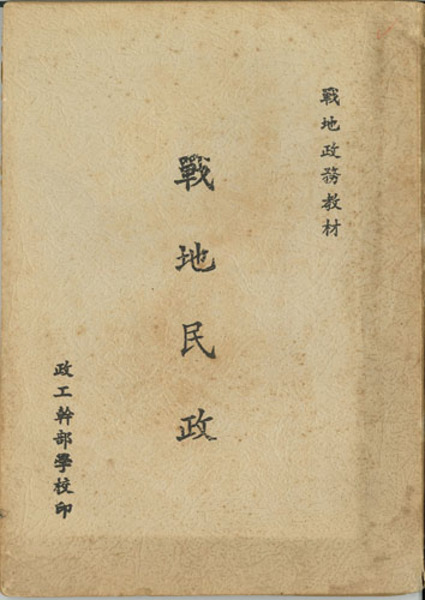 戰地政務教材
戰地民政
政工幹部學校印